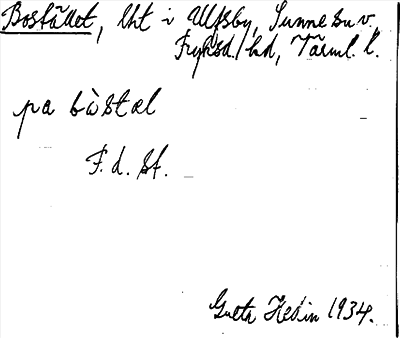 Bostället, lht i Ulfsby, Sunne sn v.
Fryksd. hd, Värml. l.
pa bòstæl
F. d. st.
Greta Hedin 1934.